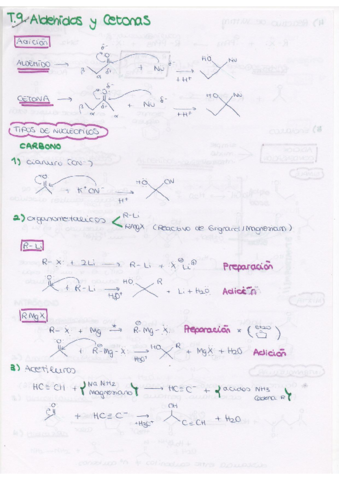 T.9. Aldehídos y Cetonas
ADICIÓN
ALDEHÍDO → + Nu δ- → +H⁺ HO Nu
CETONA → + Nu δ- → +H⁺ HO Nu
TIPOS DE NUCLEÓFILOS
CARBONO
1) Cianuro (CN⁻)
+ K⁺CN⁻ → H⁺ HO CN
2) Organometálicos R-Li
RMgX (Reactivo de Grignard/Magnesiano)
R-Li
R-X + 2Li → R-Li + X⁻Li⁺ Preparación
+ R-Li → H₃O⁺ HO R + Li + H₂O Adición
RMgX
R-X + Mg → R-Mg-X Preparación *
+ R-Mg-X → H₃O⁺ HO R + MgX + H₂O Adición
3) Acetiluros
HC≡CH + NaNH₂ Magnesiano → HC≡C⁻ + ácidos NH₃
+ HC≡C⁻ → H₃O⁺ OH C≡CH + H₂O